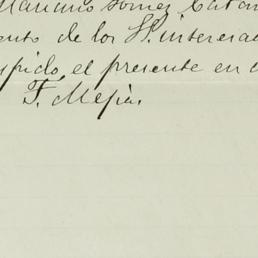 Mariano Gomez
ento de los Sr. interesad
spido, el presente en
F. Mejia.